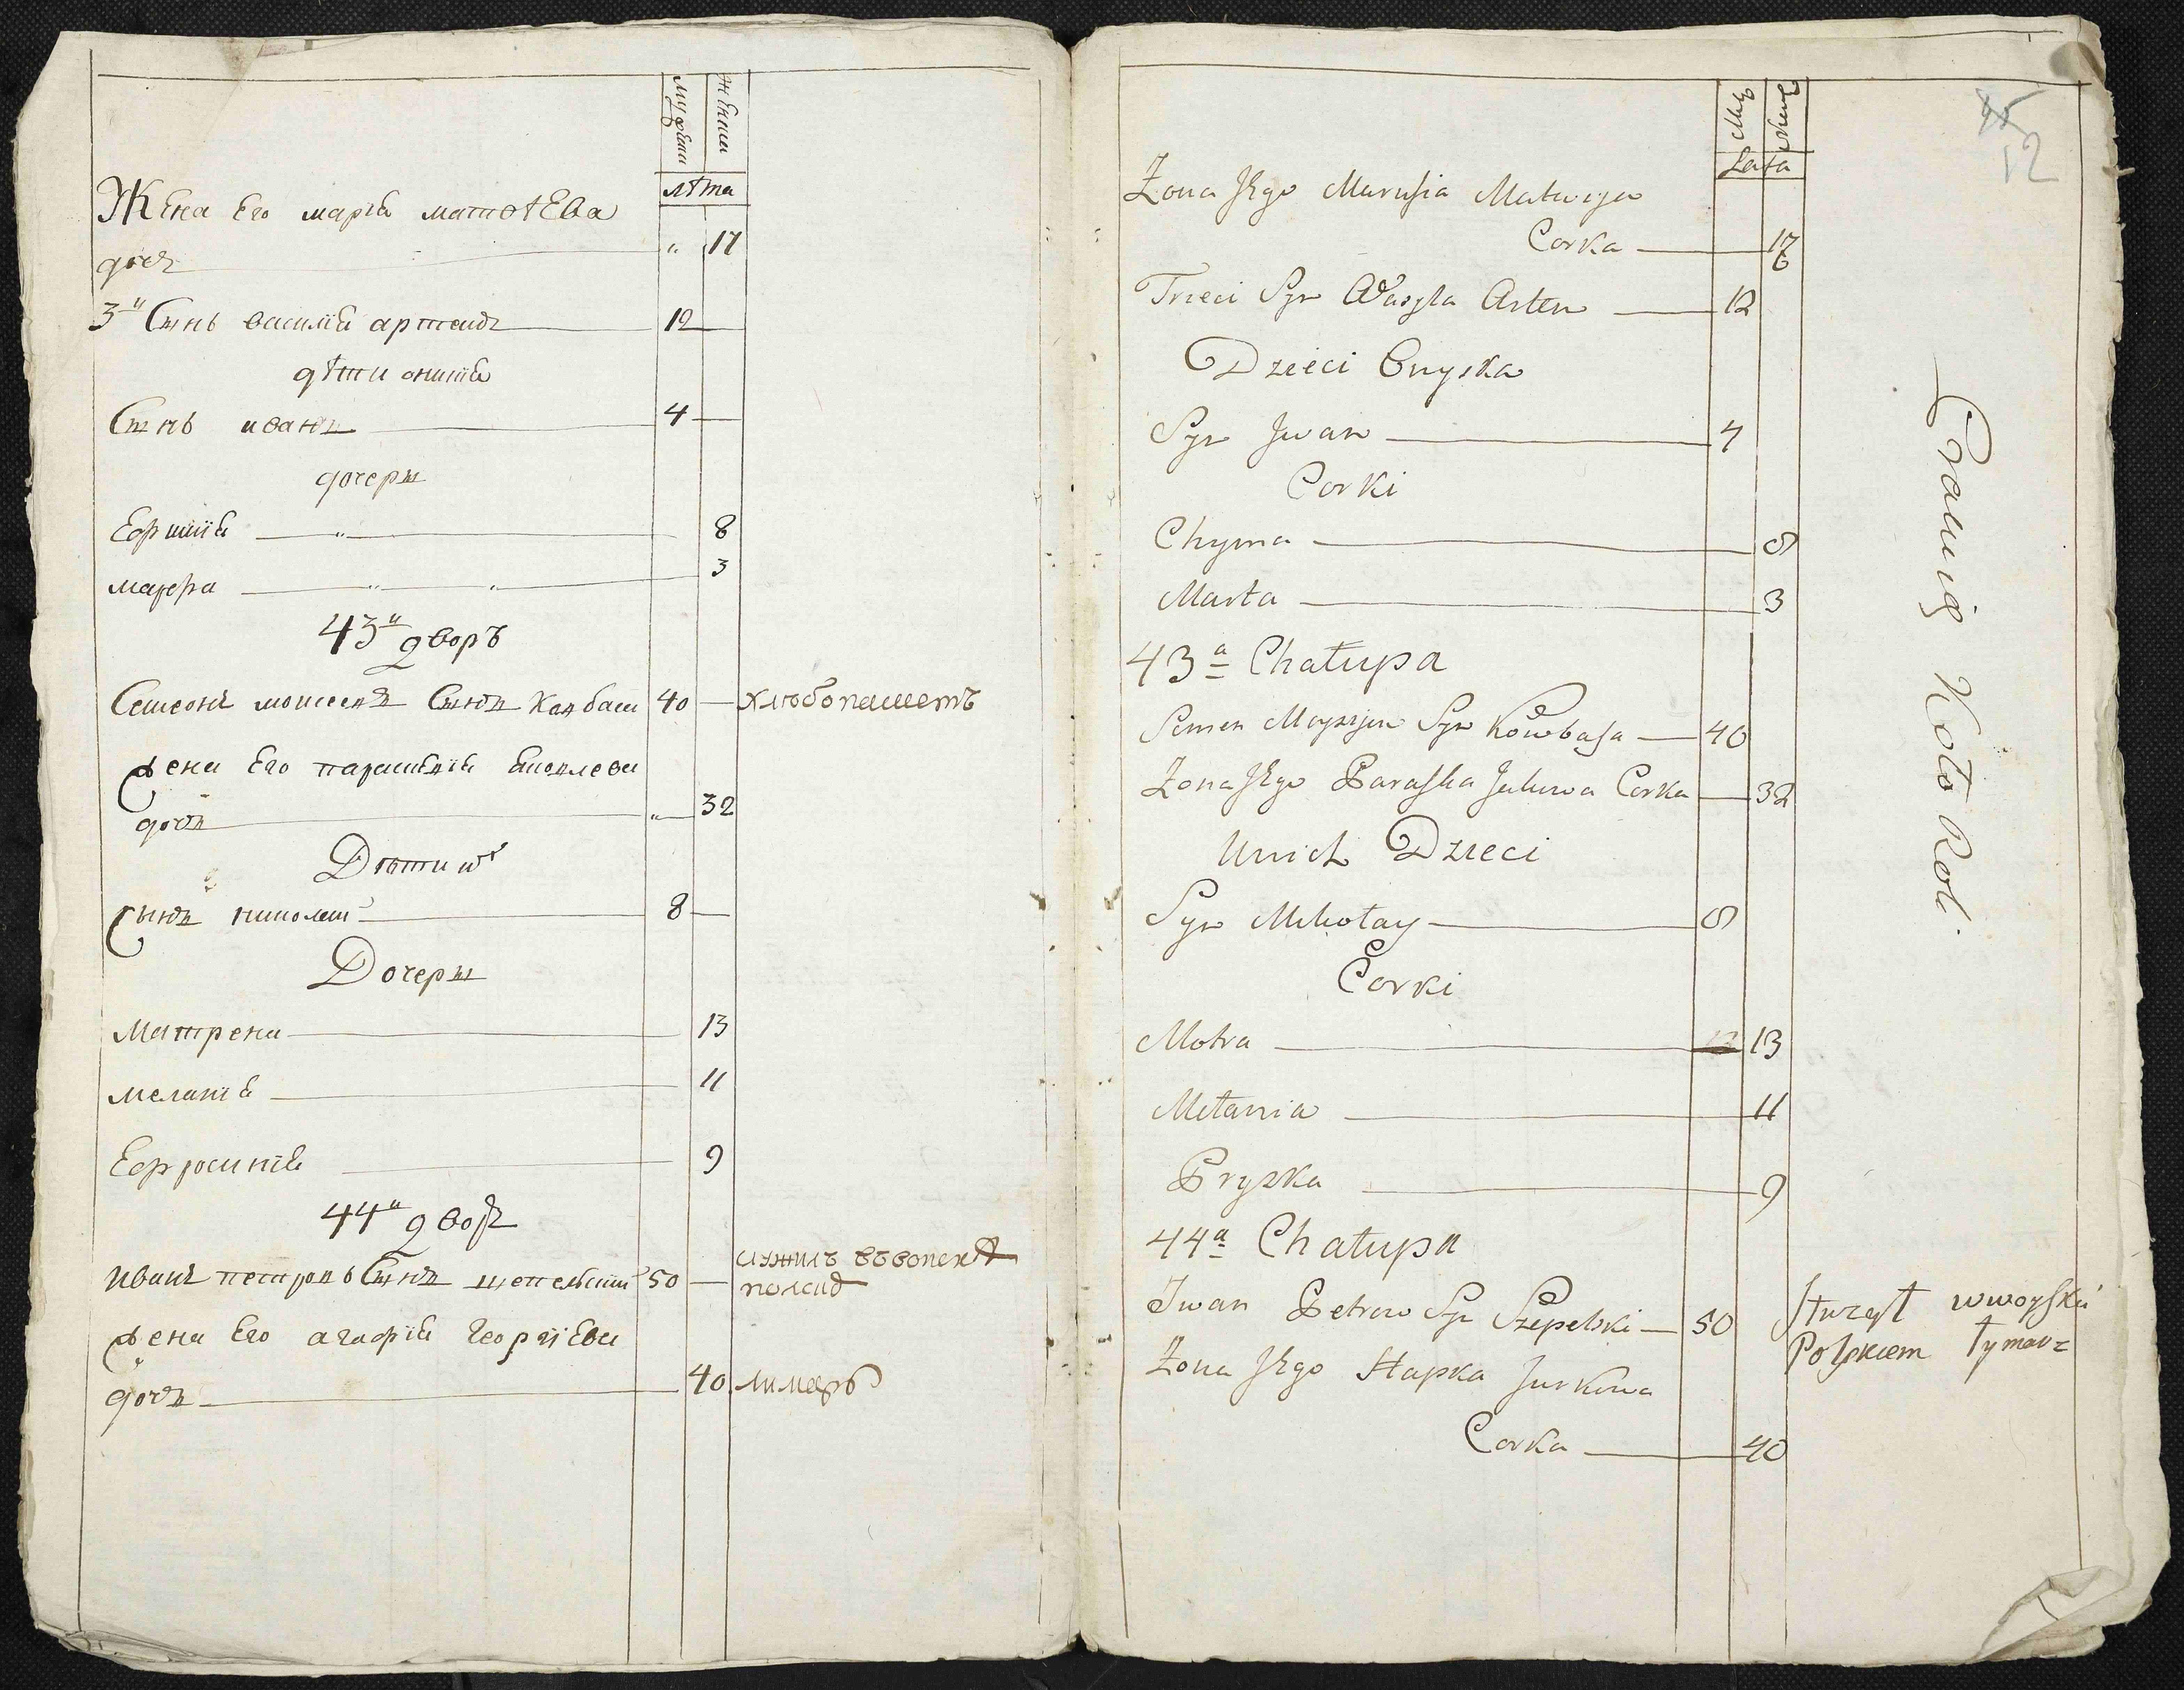 мужеска
женска
лѣта
Жена Его марія матвѣЕва
дочь " 17
3й Сынъ василій артемов 12
дѣти онисія
Сынъ иванъ 4
дочери
Ефимія 8
марфа 3
43й дворъ
Семенъ моисеевъ Сынъ Ковбаса 40 хлѣбопашетъ
жена Его параскевія яковлева
дочь " 32
Дѣти их
Сынъ николай 8
Дочери
Матрена 13
меланія 11
Ефросинія 9
44й дворъ
иванъ петровъ Сынъ щепельский 50 служилъ въ
польск
жена Его агафія Георгіева
дочь 40 лимаръ
12
Męz
Lata
Żona Jego Marusia Matwija
Corka 17
Trzeci Syn Wasyla Artem 12
Dzieci Onyska
Syn Jwan 4
Corki
Chyma 8
Marta 3
43a Chałupa
Semen Moysijow Syn Kowbasa 40
Żona Jego Paraska Jakowa Corka 32
U nich Dzieci
Syn Mikołay 8
Corki
Motra 13 13
Mełania 11
Pryska 9
44a Chałupa
Jwan Petrow Syn Szepelski 50
Służył w woysku
Polskiem Łymarz
Żona Jego Hapka Jurkowa
Corka 40
Koło Rol.